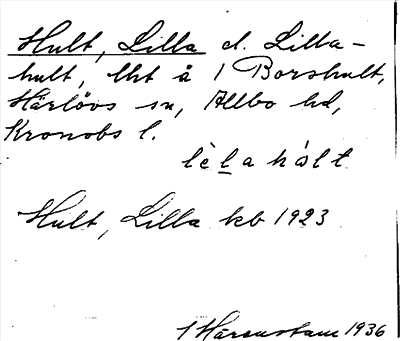 Hult, Lilla el. Lilla-
hult, lht å 1 Borshult,
Härlövs sn, Allbo hd,
Kronobs l.
lèl̲a hált
Hult, Lilla kb 1923
J Hårenstam 1936